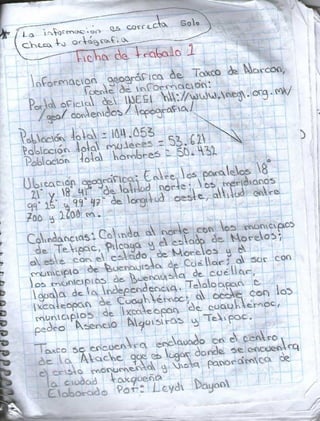 * La información es correcta Solo
Checa tu ortografía.
Ficha de trabajo 1
Información geográfica de Taxco de Alarcon,
fuente de información:
Portal oficial del INEGI htt://www.inegi.org.mx
/geo/contenidos/topografía/
Población total = 104.053
Población total mujeres = 53.621
Población total hombres = 50.432
Ubicación geográfica: Entre los paralelos 18°
21' y 18° 41' de latitud norte; los meridianos
99° 25' y 99° 47' de longitud oeste, altitud entre
700 y 2600 m.
Colindancias: Colinda al norte con los municipios
de Tetipac, Pilcaya y el estado de Morelos;
al este con el estado de Morelos y el
municipio de Buenavista de Cuellar; al sur con
los municipios de Buenavista de cuellar,
Iguala de la Independencia, Teloloapan e
Ixcateopan de Cuauhtémoc; al oeste con los
municipios de Ixcateopan de cuauhtemoc,
pedro Asencio Alquisiras y Tetipac.
Taxco se encuentra enclavado en el centro
de la Atache que es lugar donde se encuentra
el cristo monumental y vista panorámica de
la ciudad taxqueña
Elaborado Por: Leydi Dayani